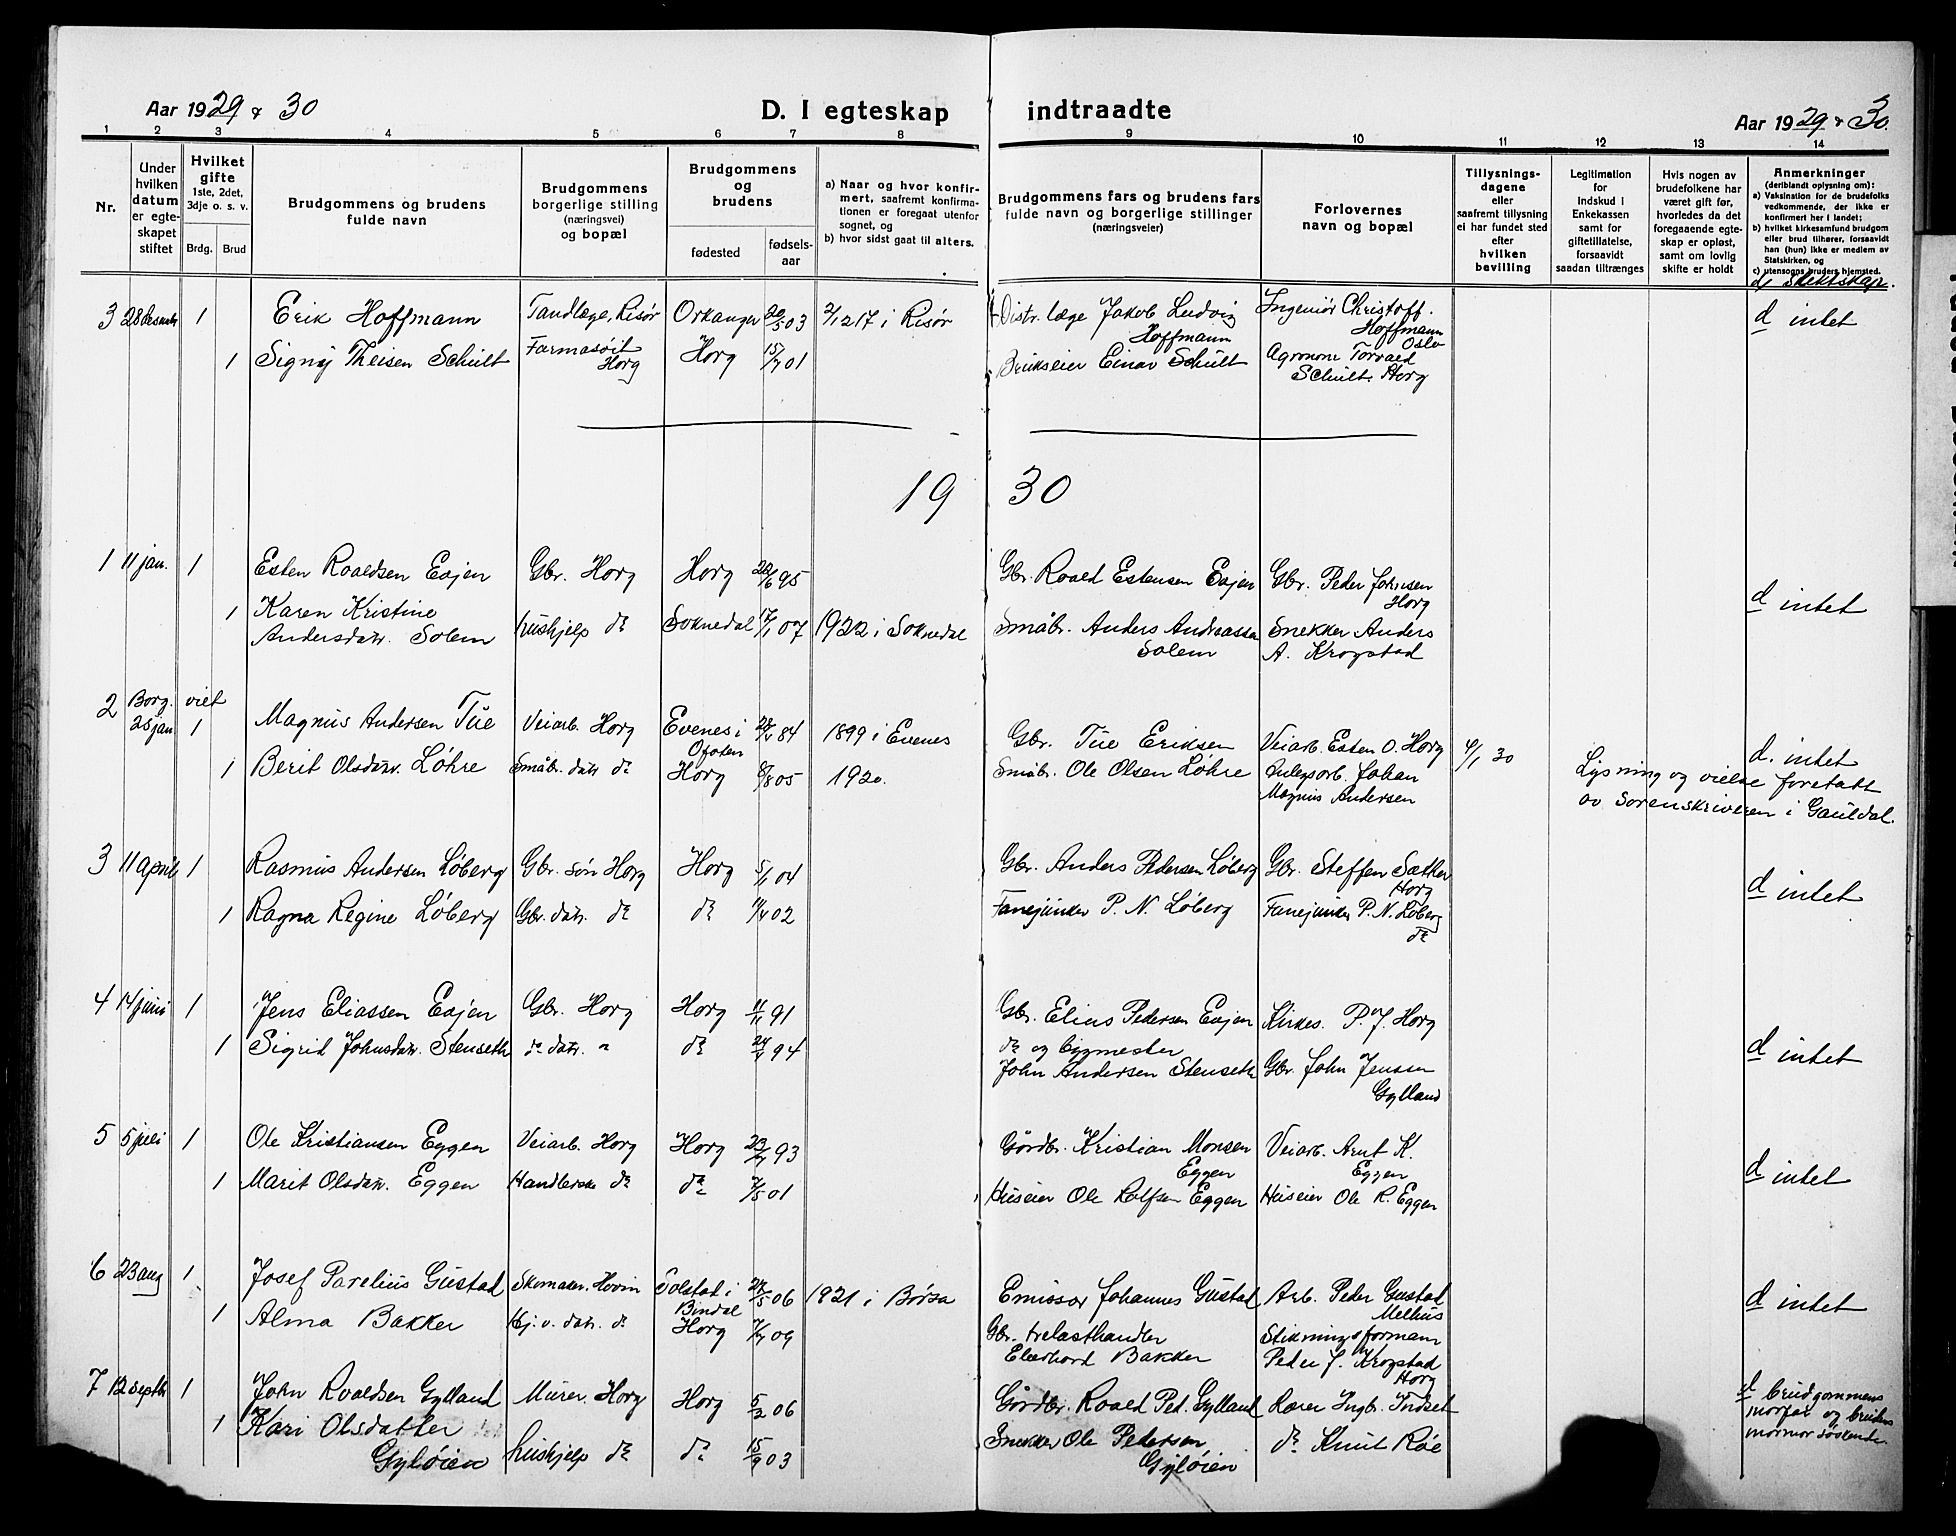 Aar 1929 & 30
D. I egteskap indtraadte
Aar 1929 & 30.
3
1 2 3 4 5 6 7 8 9 10 11 12 13 14
Nr.
Under hvilken datum er egte-skapet stiftet
Hvilket gifte
1ste, 2det, 3dje o. s. v.
Brdg. Brud
Brudgommens og brudens fulde navn
Brudgommens borgerlige stilling (næringsvei) og bopæl
Brudgommens og brudens
fødested
fødsels-aar
a) Naar og hvor konfir-mert, saafremt konfirma-tionen er foregaat utenfor sognet, og
b) hvor sidst gaat til alters.
Brudgommens fars og brudens fars fulde navn og borgerlige stillinger (næringsveier)
Forlovernes navn og bopæl
Tillysnings-dagene eller saafremt tillysning ei har fundet sted efter hvilken bevilling
Legitimation for Indskud i Enkekassen samt for giftetillatelse, forsaavidt saadan tiltrænges
Hvis nogen av brudefolkene har været gift før, hvorledes da det foregaaende egte-skap er opløst, samt om lovlig skifte er holdt
Anmerkninger
(deriblandt oplysning om):
a) Vaksination for de brudefolks vedkommende, der ikke er konfirmert her i landet;
b) hvilket kirkesamfund brudgom eller brud tilhører, forsaavidt han (hun) ikke er medlem av Statskirken, og
c) utensogns bruders hjemsted.
d) Slektskap.
3 28 desember 1 Erik Hoffmann Tandlæge, Risør Orkanger 20/5 03 2/12 17 i Risør
Distr. læge Jakob Ludvig Hoffmann Ingeniør Christoff. Hoffmann Oslo d intet
1 Signy Theisen Schult Farmasøit Horg Horg 15/7 01
Brukseier Einar Schult Agronom Torvald Schult. Horg
19 30
1 11 jan. 1 Esten Roaldsen Eajen Gbr. Horg Horg 22/6 95
Gbr. Roald Estensen Eajen Gbr. Peder Johnsen Horg d intet
1 Karen Kristine Andersdatr. Solem hushjelp do Soknedal 17/1 07 1922 i Soknedal
Småbr. Anders Andreassen Solem Snekker Anders A. Krogstad
2 Borg. viet
25 jan 1 Magnus Andersen Tüe Veiarb. Horg Evenes i Ofoten 84 1899 i Evenes
Gbr. Tüe Eriksen Veiarb. Esten O. Horg 4/1 30 d. intet
1 Berit Olsdatr. Løhre Småbr. datr do Horg 8/8 05 1920.
Småbr. Ole Olsen Løhre Anlegsarb. Johan Magnus Andersen
Lysning og vielse foretatt av Sorenskriveren i Gauldal.
3 11 april 1 Rasmus Andersen Løberg Gbr. søn Horg Horg 5/1 04
Gbr. Anders Pedersen Løberg Gbr. Steffen Sæther Horg d intet
1 Ragna Regine Løberg Gbr. datr. do do 02
Fanejunker P. N. Løberg Fanejunker P. N. Løberg do
4 14 juni 1 Jens Eliassen Eajen Gbr. Horg Horg 11/11 91
Gbr. Elias Pedersen Eajen Kirkes. P. J. Horg
1 Sigrid Johnsdatr. Stenseth do datr. " do 94
do og bygmester John Andersen Stenseth Gbr. John Jenssen Gylland d intet
5 5 juli 1 Ole Kristiansen Eggen Veiarb. Horg Horg 93
Gårdbr. Kristian Monsen Eggen Veiarb. Arnt K. Eggen d intet
1 Marit Olsdatr. Eggen Handlerske do do 7/5 01
Huseier Ole Rolfsen Eggen Huseier Ole R. Eggen
6 23 aug 1 Josef Parelius Gustad Skomaker. Hovin Solstad i Bindal 06 1921 i Børsa
Emissær Johannes Gustad Arb. Peder Gustad Melhus d intet
1 Alma Bakker Hj. v. datr. do Horg 09
Gbr. trelasthandler Eberhard Bakker Stikningsformann Peder J. Krogstad Horg
7 12 septbr 1 John Roaldsen Gylland Murer. Horg Horg 5/2 06
Gårdbr. Roald Ped. Gylland Lærer Ingbr. Indset d brudgommens morfar og brudens mormor søskende.
1 Kari Olsdatter Gyløien hushjelp do do 15/9 03
Snekker Ole Pedersen Gyløien do Knut Røe